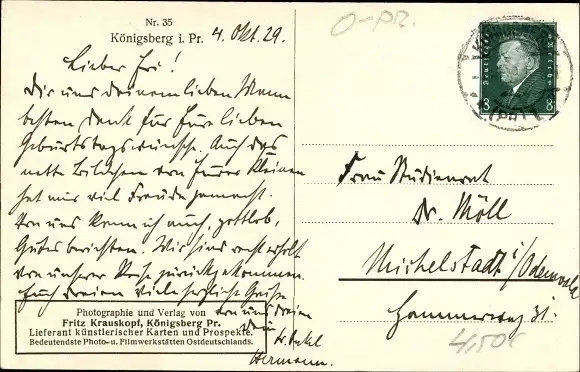 Nr. 35
Königsberg i. Pr. 4. Okt. 29.
O-Pr.
Lieber Fri!
Dir und deinem lieben Mann
besten Dank für Eure lieben
Geburtstagswünsche. Auch das
nette Bildchen von Eurer Kleinen
hat mir viel Freude gemacht.
Von uns kann ich auch, gottlob,
Gutes berichten. Wir sind recht erholt
von unserer Reise zurückgekommen.
Euch dreien viele herzliche Grüße
von uns dreien
Dein
Onkel
Hermann.
Photographie und Verlag von
Fritz Krauskopf, Königsberg Pr.
Lieferant künstlerischer Karten und Prospekte.
Bedeutendste Photo- u. Filmwerkstätten Ostdeutschlands.
Deutsches Reich
8 8
Frau Studienrat
Dr. Möll
Michelstadt i/Odenwald
Hammerweg 31.
4,50